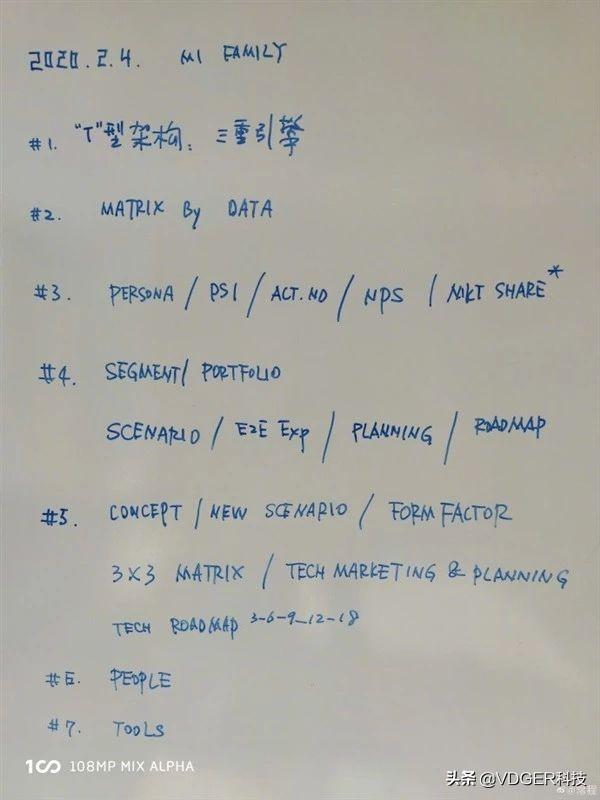 2020.2.4. MI FAMILY
#1. "T"型架构：三重引擎
#2. MATRIX By DATA
#3. PERSONA / PSI / ACT.NO / NPS / MKT SHARE*
#4. SEGMENT/ PORTFOLIO
SCENARIO / E2E Exp / PLANNING / ROADMAP
#5. CONCEPT / NEW SCENARIO / FORM FACTOR
3X3 MATRIX / TECH MARKETING & PLANNING
TECH ROADMAP 3-6-9_12-18
#6. PEOPLE
#7. TOOLS
108MP MIX ALPHA
头条 @VDGER科技
@常程